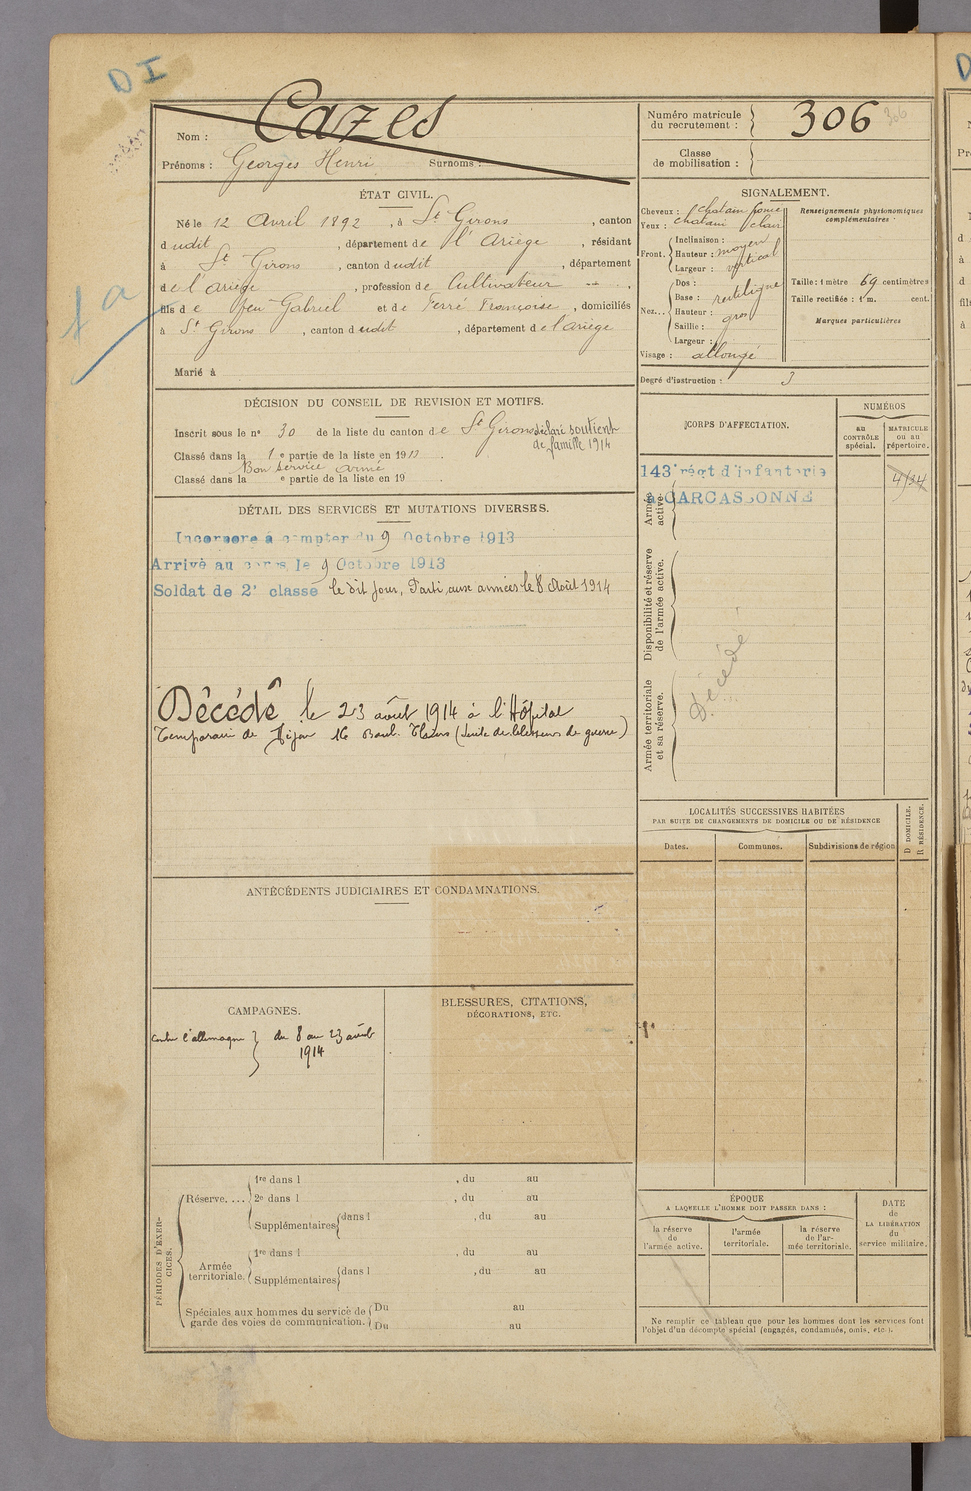 D I
Cazes
Nom :
Prénoms : Georges Henri Surnoms :
Numéro matricule
du recrutement : 306
306
Classe
de mobilisation :
ÉTAT CIVIL.
Né le 12 Avril 1892, à St Girons, canton
dudit, département de l'Ariège, résidant
à St Girons, canton dudit, département
de l'Ariège, profession de Cultivateur
fils de feu Gabriel et de Ferré Françoise, domiciliés
à St Girons, canton dudit, département de l'Ariège
Marié à
1a
SIGNALEMENT.
Cheveux : chatain foncé
Yeux : chatain clair
Front. Inclinaison :
Hauteur : moyen
Largeur : vertical
Nez... Dos :
Base : rectiligne
Hauteur : gros
Saillie :
Largeur :
Visage : allongé
Renseignements physionomiques
complémentaires :
Taille : 1 mètre 69 centimètres
Taille rectifiée : 1 m. cent.
Marques particulières
Degré d'instruction : 3
DÉCISION DU CONSEIL DE REVISION ET MOTIFS.
Inscrit sous le n° 30 de la liste du canton de St Girons déclaré soutien
de famille 1914
Classé dans la 1e partie de la liste en 1913
Bon service armé
Classé dans la e partie de la liste en 19
DÉTAIL DES SERVICES ET MUTATIONS DIVERSES.
Incorporé à compter du 9 Octobre 1913
Arrivé au corps le 9 Octobre 1913
Soldat de 2e classe le dit jour, Parti aux armées le 8 Août 1914
Décédé le 23 août 1914 à l'Hôpital
Temporaire de Dijon 16 Boul. Thiers (suite de blessures de guerre)
CORPS D'AFFECTATION.
NUMÉROS
au
CONTRÔLE
spécial.
MATRICULE
ou au
répertoire.
143e régt d'infanterie
à CARCASSONNE
Armée
active.
Disponibilité et réserve
de l'armée active.
Armée territoriale
et sa réserve.
Décédé
LOCALITÉS SUCCESSIVES HABITÉES
PAR SUITE DE CHANGEMENTS DE DOMICILE OU DE RÉSIDENCE
Dates.
Communes.
Subdivisions de région
D. DOMICILE.
R. RÉSIDENCE.
ANTÉCÉDENTS JUDICIAIRES ET CONDAMNATIONS.
CAMPAGNES.
Contre l'allemagne } du 8 au 23 août
1914
BLESSURES, CITATIONS,
DÉCORATIONS, ETC.
PÉRIODES D'EXER-
CICES.
Réserve.... 1re dans l , du au
2e dans l , du au
Supplémentaires dans l , du au
Armée
territoriale. 1re dans l , du au
Supplémentaires dans l , du au
Spéciales aux hommes du service de
garde des voies de communication. Du au
Du au
ÉPOQUE
A LAQUELLE L'HOMME DOIT PASSER DANS :
la réserve
de
l'armée active.
l'armée
territoriale.
la réserve
de l'ar-
mée territoriale.
DATE
de
LA LIBÉRATION
du
service militaire.
Ne remplir ce tableau que pour les hommes dont les services font
l'objet d'un décompte spécial (engagés, condamnés, omis, etc.).